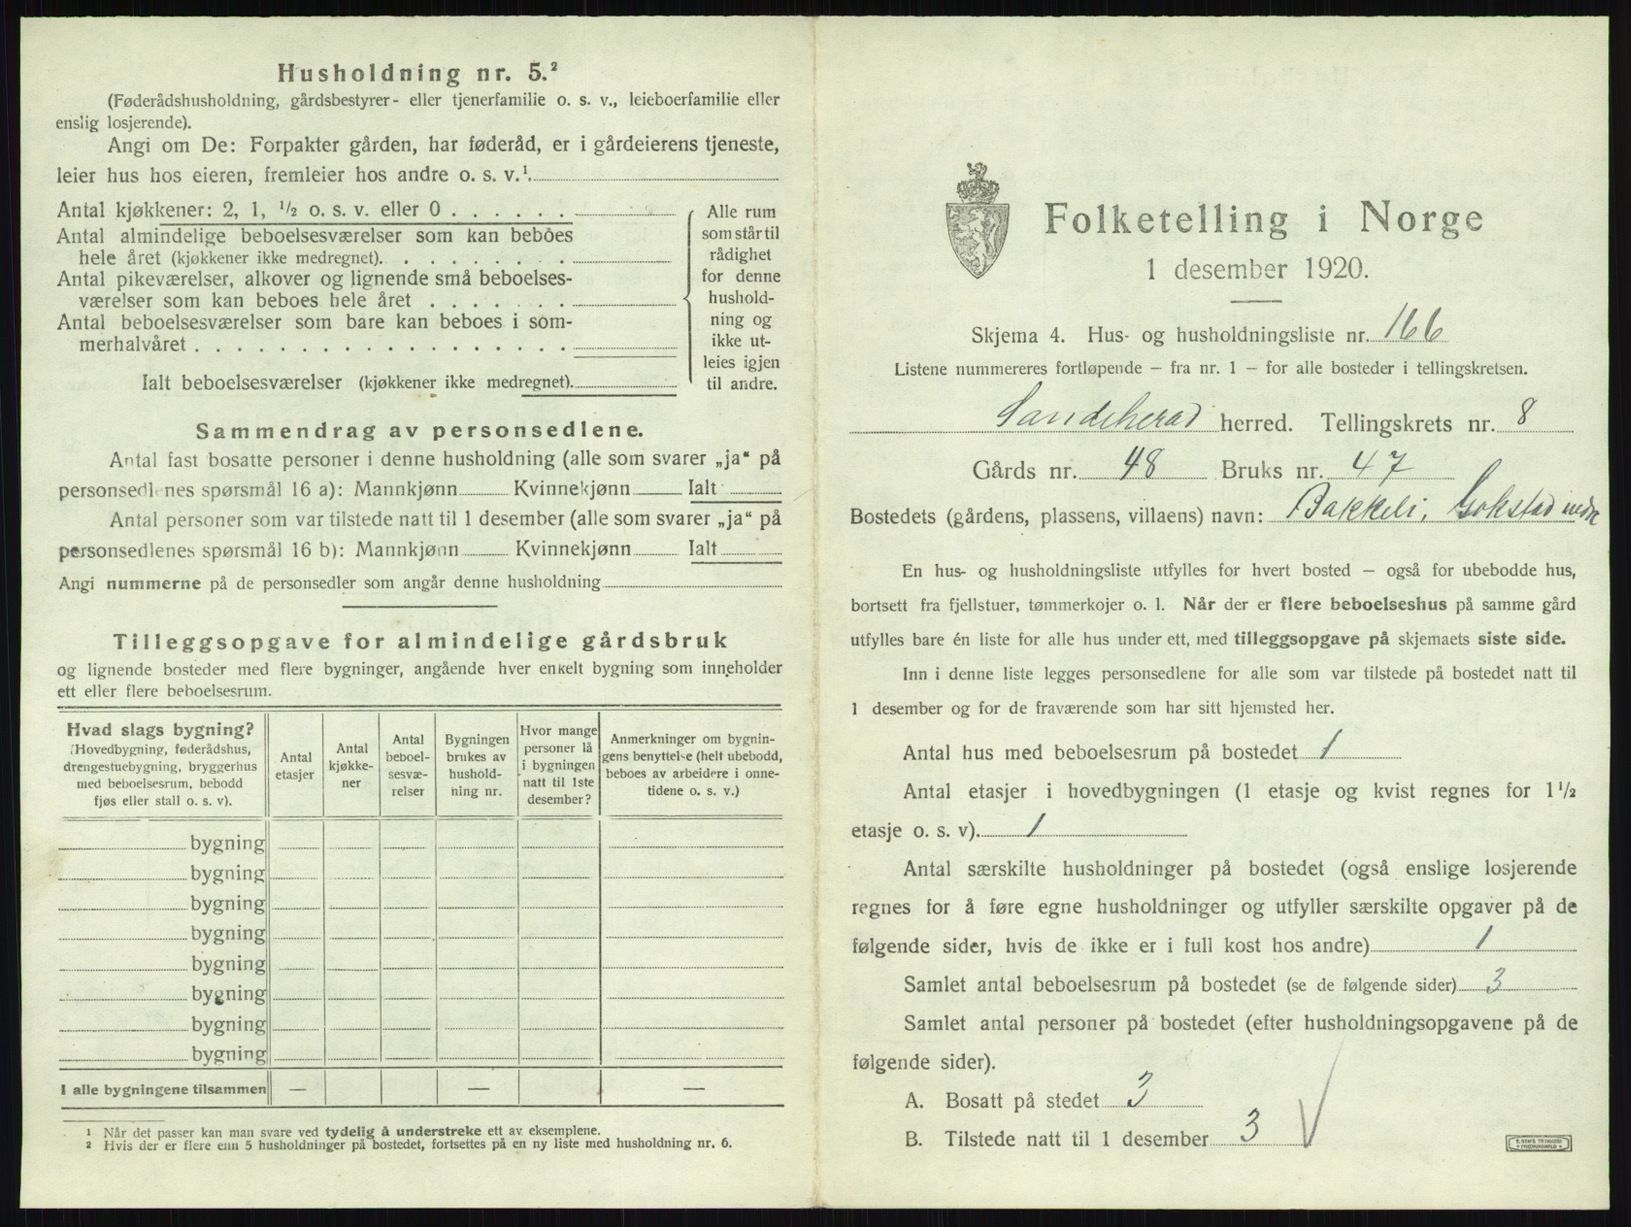 Husholdning nr. 5.²
(Føderådshusholdning, gårdsbestyrer- eller tjenerfamilie o. s. v., leieboerfamilie eller
enslig losjerende).
Angi om De: Forpakter gården, har føderåd, er i gårdeierens tjeneste,
leier hus hos eieren, fremleier hos andre o. s. v.¹.
Antal kjøkkener: 2, 1, ½ o. s. v. eller 0
Antal almindelige beboelsesværelser som kan beboes
hele året (kjøkkener ikke medregnet).
Antal pikeværelser, alkover og lignende små beboelses-
værelser som kan beboes hele året
Antal beboelsesværelser som bare kan beboes i som-
merhalvåret
Ialt beboelsesværelser (kjøkkener ikke medregnet).
Alle rum
som står til
rådighet
for denne
hushold-
ning og
ikke ut-
leies igjen
til andre.
Sammendrag av personsedlene.
Antal fast bosatte personer i denne husholdning (alle som svarer „ja“ på
personsedlenes spørsmål 16 a): Mannkjønn Kvinnekjønn Ialt
Antal personer som var tilstede natt til 1 desember (alle som svarer „ja“ på
personsedlenes spørsmål 16 b): Mannkjønn Kvinnekjønn Ialt
Angi nummerne på de personsedler som angår denne husholdning
Tilleggsopgave for almindelige gårdsbruk
og lignende bosteder med flere bygninger, angående hver enkelt bygning som inneholder
ett eller flere beboelsesrum.
Hvad slags bygning?
(Hovedbygning, føderådshus,
drengestuebygning, bryggerhus
med beboelsesrum, bebodd
fjøs eller stall o. s. v).
Antal
etasjer
Antal
kjøkke-
ner
Antal
beboel-
sesvæ-
relser
Bygningen
brukes av
hushold-
ning nr.
Hvor mange
personer lå
i bygningen
natt til 1ste
desember?
Anmerkninger om bygnin-
gens benyttelse (helt ubebodd,
beboes av arbeidere i onne-
tidene o. s. v.)
bygning
bygning
bygning
bygning
bygning
bygning
bygning
bygning
I alle bygningene tilsammen — — —
¹ Når det passer kan man svare ved tydelig å understreke ett av eksemplene.
² Hvis der er flere enn 5 husholdninger på bostedet, fortsettes på en ny liste med husholdning nr. 6.
Folketelling i Norge
1 desember 1920.
Skjema 4. Hus- og husholdningsliste nr. 166
Listene nummereres fortløpende — fra nr. 1 — for alle bosteder i tellingskretsen.
Sandeherad herred. Tellingskrets nr. 8
Gårds nr. 48 Bruks nr. 47
Bostedets (gårdens, plassens, villaens) navn: Bakkeli, Gokstad indre
En hus- og husholdningsliste utfylles for hvert bosted — også for ubebodde hus,
bortsett fra fjellstuer, tømmerkojer o. l. Når der er flere beboelseshus på samme gård
utfylles bare én liste for alle hus under ett, med tilleggsopgave på skjemaets siste side.
Inn i denne liste legges personsedlene for alle som var tilstede på bostedet natt til
1 desember og for de fraværende som har sitt hjemsted her.
Antal hus med beboelsesrum på bostedet 1
Antal etasjer i hovedbygningen (1 etasje og kvist regnes for 1½
etasje o. s. v). 1
Antal særskilte husholdninger på bostedet (også enslige losjerende
regnes for å føre egne husholdninger og utfyller særskilte opgaver på de
følgende sider, hvis de ikke er i full kost hos andre) 1
Samlet antal beboelsesrum på bostedet (se de følgende sider) 3
Samlet antal personer på bostedet (efter husholdningsopgavene på de
følgende sider).
A. Bosatt på stedet 3
B. Tilstede natt til 1 desember 3